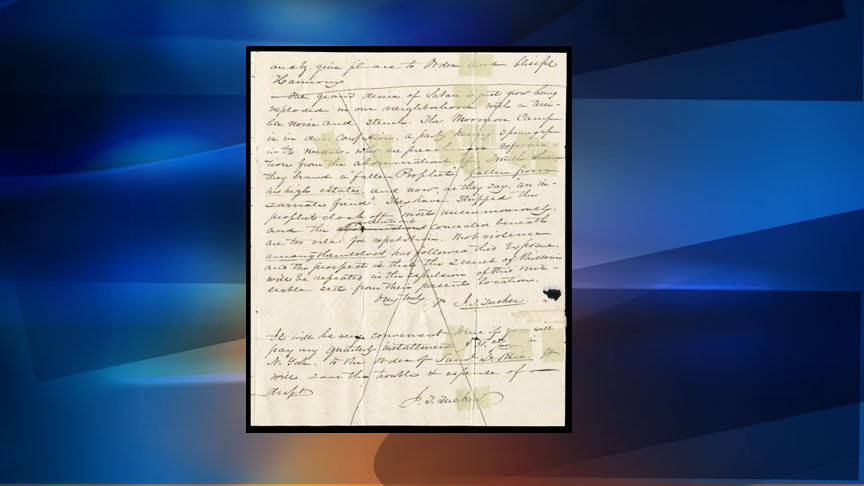 and give place to Order and blissful
Harmony.
The grand device of Satan is just now being
exploded in our neighborhood with a terri-
ble noise and stench. The Mormon Camp
is in dire Confusion. a party having sprung up
in its midst who are preaching a reforma-
tion from the abominations of Smith whom
they brand a "fallen Prophet" fallen from
his high estate, and now, as they say, "an in-
carnate fiend". They have stripped the
prophets cloak off most unceremoniously
and the concealed beneath
are too vile for repetition. Mob violence
among themselves has followed this Exposure,
and the prospect is that the Scenes of Missouri
will be repeated in the expulsion of this mis-
erable Sect from their present locations.
Very truly yrs J. T. Tucker.
It will be very convenient to me if you will
pay my quarterly installment in
N. York. to the order of It
will save the trouble & expense of
draft
J. T. Tucker.